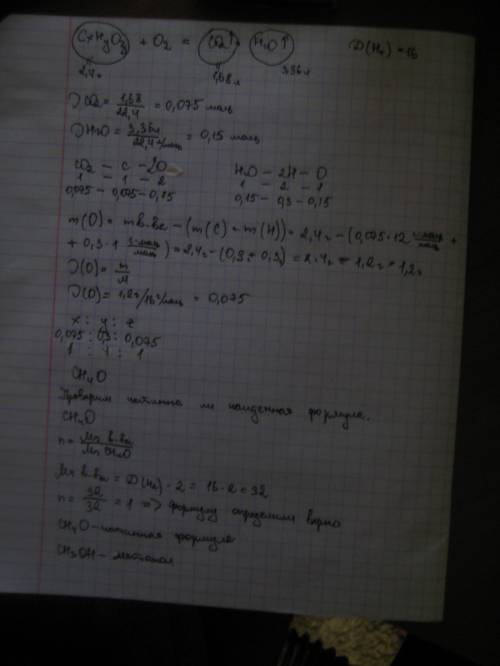 CxHyOz + O2 = CO2↑ + H2O↑   D(H2) = 16
2,4г   1,68л   3,36л
ν CO2 = 1,68/22,4 = 0,075 моль
ν H2O = 3,36л/22,4 л/моль = 0,15 моль
CO2 – C – 2O   H2O – 2H – O
1 – 1 – 2   1 – 2 – 1
0,075 – 0,075 – 0,15   0,15 – 0,3 – 0,15
m(O) = mв-ва – (m(C) + m(H)) = 2,4г – (0,075·12 г·моль/моль +
+ 0,3·1 г·моль/моль) = 2,4г – (0,9 + 0,3) = 2,4г – 1,2г = 1,2г
ν(O) = m/M
ν(O) = 1,2г/16г/моль = 0,075
x : y : z
0,075 : 0,3 : 0,075
1 : 4 : 1
CH4O
Проверим истинна ли найденная формула.
CH4O
n = Mr в-ва/Mr CH4O
Mr в-ва = D(H2) · 2 = 16 · 2 = 32
n = 32/32 = 1 => формулу определили верно
CH4O – истинная формула
CH3OH – метанол